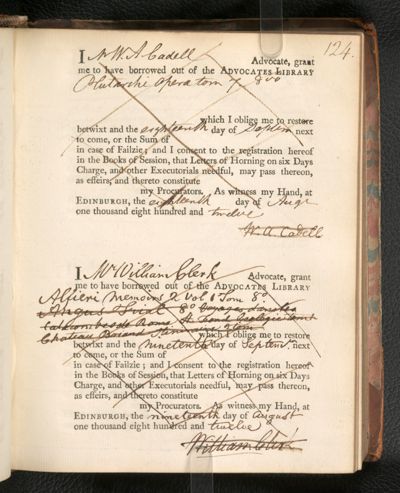 124.
I Mr W. A. Cadell Advocate, grant
me to have borrowed out of the ADVOCATES LIBRARY
Plutarchi opera tom 7 8vo
which I oblige me to restore
betwixt and the eighteenth day of Septem next
to come, or the Sum of
in case of Failzie; and I consent to the registration hereof
in the Books of Session, that Letters of Horning on six Days
Charge, and other Executorials needful, may pass thereon,
as effeirs; and thereto constitute
my Procurators. As witness my Hand, at
EDINBURGH, the eighteenth day of Augt
one thousand eight hundred and twelve
W. A. Cadell
I Mr William Clerk Advocate, grant
me to have borrowed out of the ADVOCATES LIBRARY
Alfieri Memoirs 2 Vol 1 Tom 8o
Angus 8o
Rome
Chateau
which I oblige me to restore
betwixt and the nineteenth day of Septemr. next
to come, or the Sum of
in case of Failzie; and I consent to the registration hereof
in the Books of Session, that Letters of Horning on six Days
Charge, and other Executorials needful, may pass thereon,
as effeirs, and thereto constitute
my Procurators. As witness my Hand, at
EDINBURGH, the nineteenth day of August
one thousand eight hundred and twelve
William Clerk